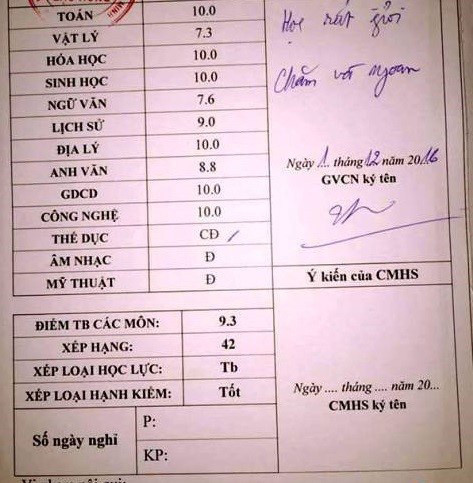 TOÁN 10.0
Học rất giỏi
VẬT LÝ 7.3
HÓA HỌC 10.0
SINH HỌC 10.0
Chăm và ngoan
NGỮ VĂN 7.6
LỊCH SỬ 9.0
ĐỊA LÝ 10.0
ANH VĂN 8.8
Ngày 1 tháng 12 năm 2016
GDCD 10.0
GVCN ký tên
CÔNG NGHỆ 10.0
THỂ DỤC CĐ
ÂM NHẠC Đ
MỸ THUẬT Đ
Ý kiến của CMHS
ĐIỂM TB CÁC MÔN: 9.3
XẾP HẠNG: 42
XẾP LOẠI HỌC LỰC: Tb
XẾP LOẠI HẠNH KIỂM: Tốt
Ngày .... tháng .... năm 20...
CMHS ký tên
Số ngày nghỉ
P:
KP: